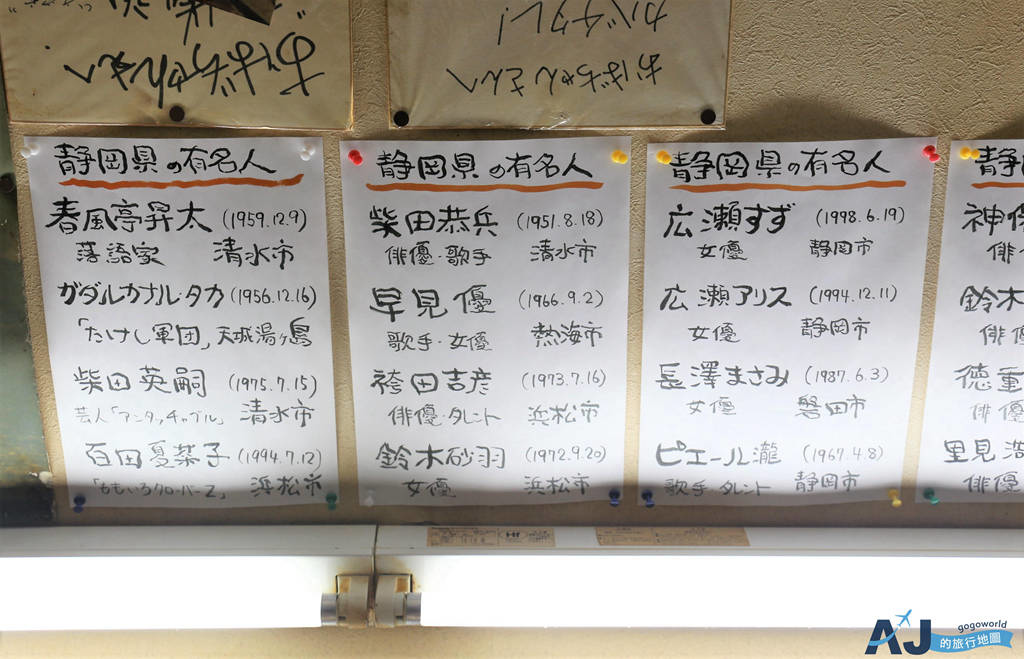 おばちゃんさんへ
おばちゃんさんへ
カバチタレ!
静岡県の有名人
春風亭昇太 (1959.12.9)
落語家 清水市
ガダルカナル・タカ (1956.12.16)
「たけし軍団」天城湯ヶ島
柴田英嗣 (1975.7.15)
芸人「アンタッチャブル」 清水市
百田夏菜子 (1994.7.12)
「ももいろクローバーZ」 浜松市
静岡県の有名人
柴田恭兵 (1951.8.18)
俳優・歌手 清水市
早見優 (1966.9.2)
歌手・女優 熱海市
袴田吉彦 (1973.7.16)
俳優・タレント 浜松市
鈴木砂羽 (1972.9.20)
女優 浜松市
静岡県の有名人
広瀬すず (1998.6.19)
女優 静岡市
広瀬アリス (1994.12.11)
女優 静岡市
長澤まさみ (1987.6.3)
女優 磐田市
ピエール瀧 (1967.4.8)
歌手・タレント 静岡市
静岡
神
俳
鈴木
俳優
徳重
俳優
里見浩
俳優
AJ
gogoworld
的旅行地圖